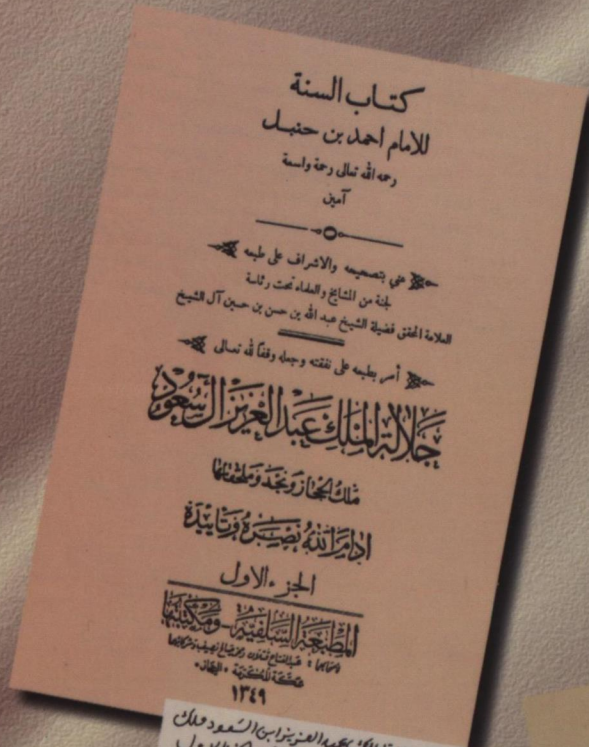 كتاب السنة
للامام احمد بن حنبل
رحمه الله تعالى رحمة واسعة
آمين
عني بتصحيحه والاشراف على طبعه
لجنة من المشايخ والعلماء تحت رئاسة
العلامة المحقق فضيلة الشيخ عبد الله بن حسن بن حسين آل الشيخ
أمر بطبعه على نفقته وجعله وقفاً لله تعالى
جلالة الملك عبد العزيز آل سعود
ملك الحجاز ونجد وملحقاتها
ادام الله نصره وتأييده
الجزء الاول
المطبعة السلفية - ومكتبتها
لصاحبها : عبد الفتاح قتلان ومحمد صالح نصيف وشركاهما
بمكة المكرمة « الحجاز »
١٣٤٩
عبد العزيز ابن السعود ملك